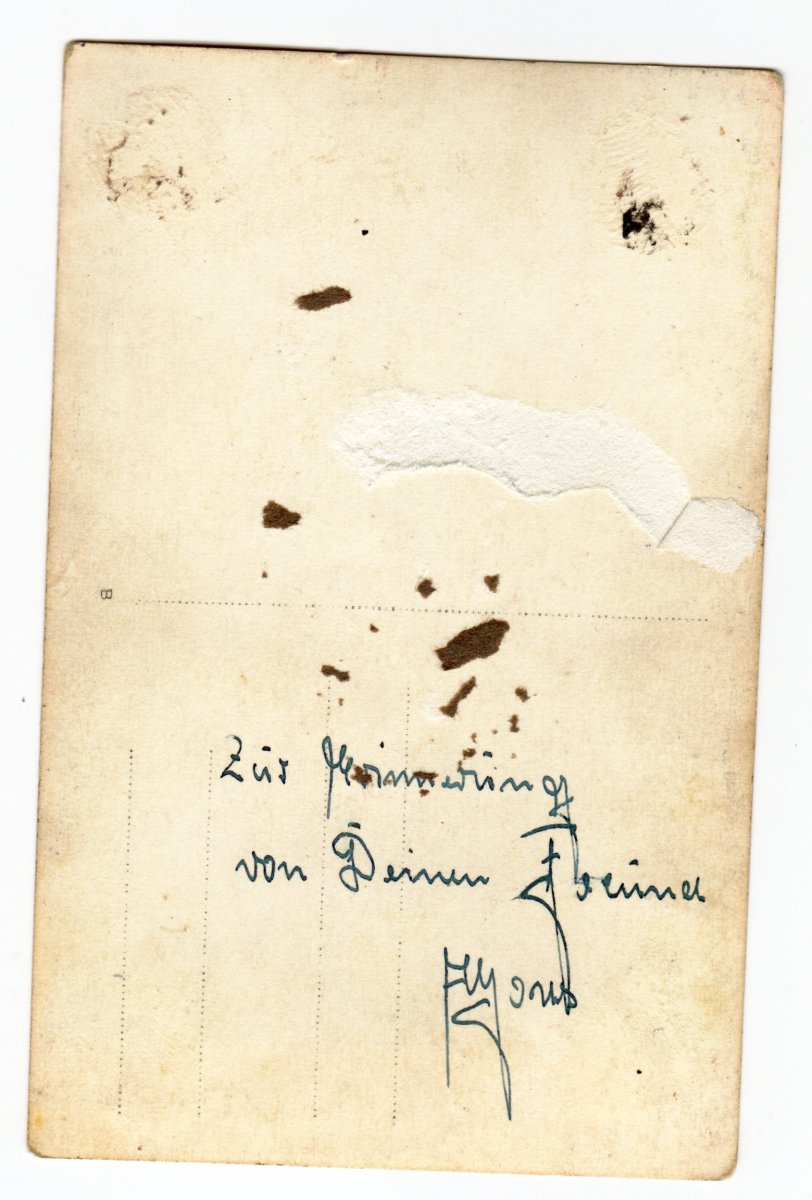 B
Zur Erinnerung
von Deinen Freund
Hans